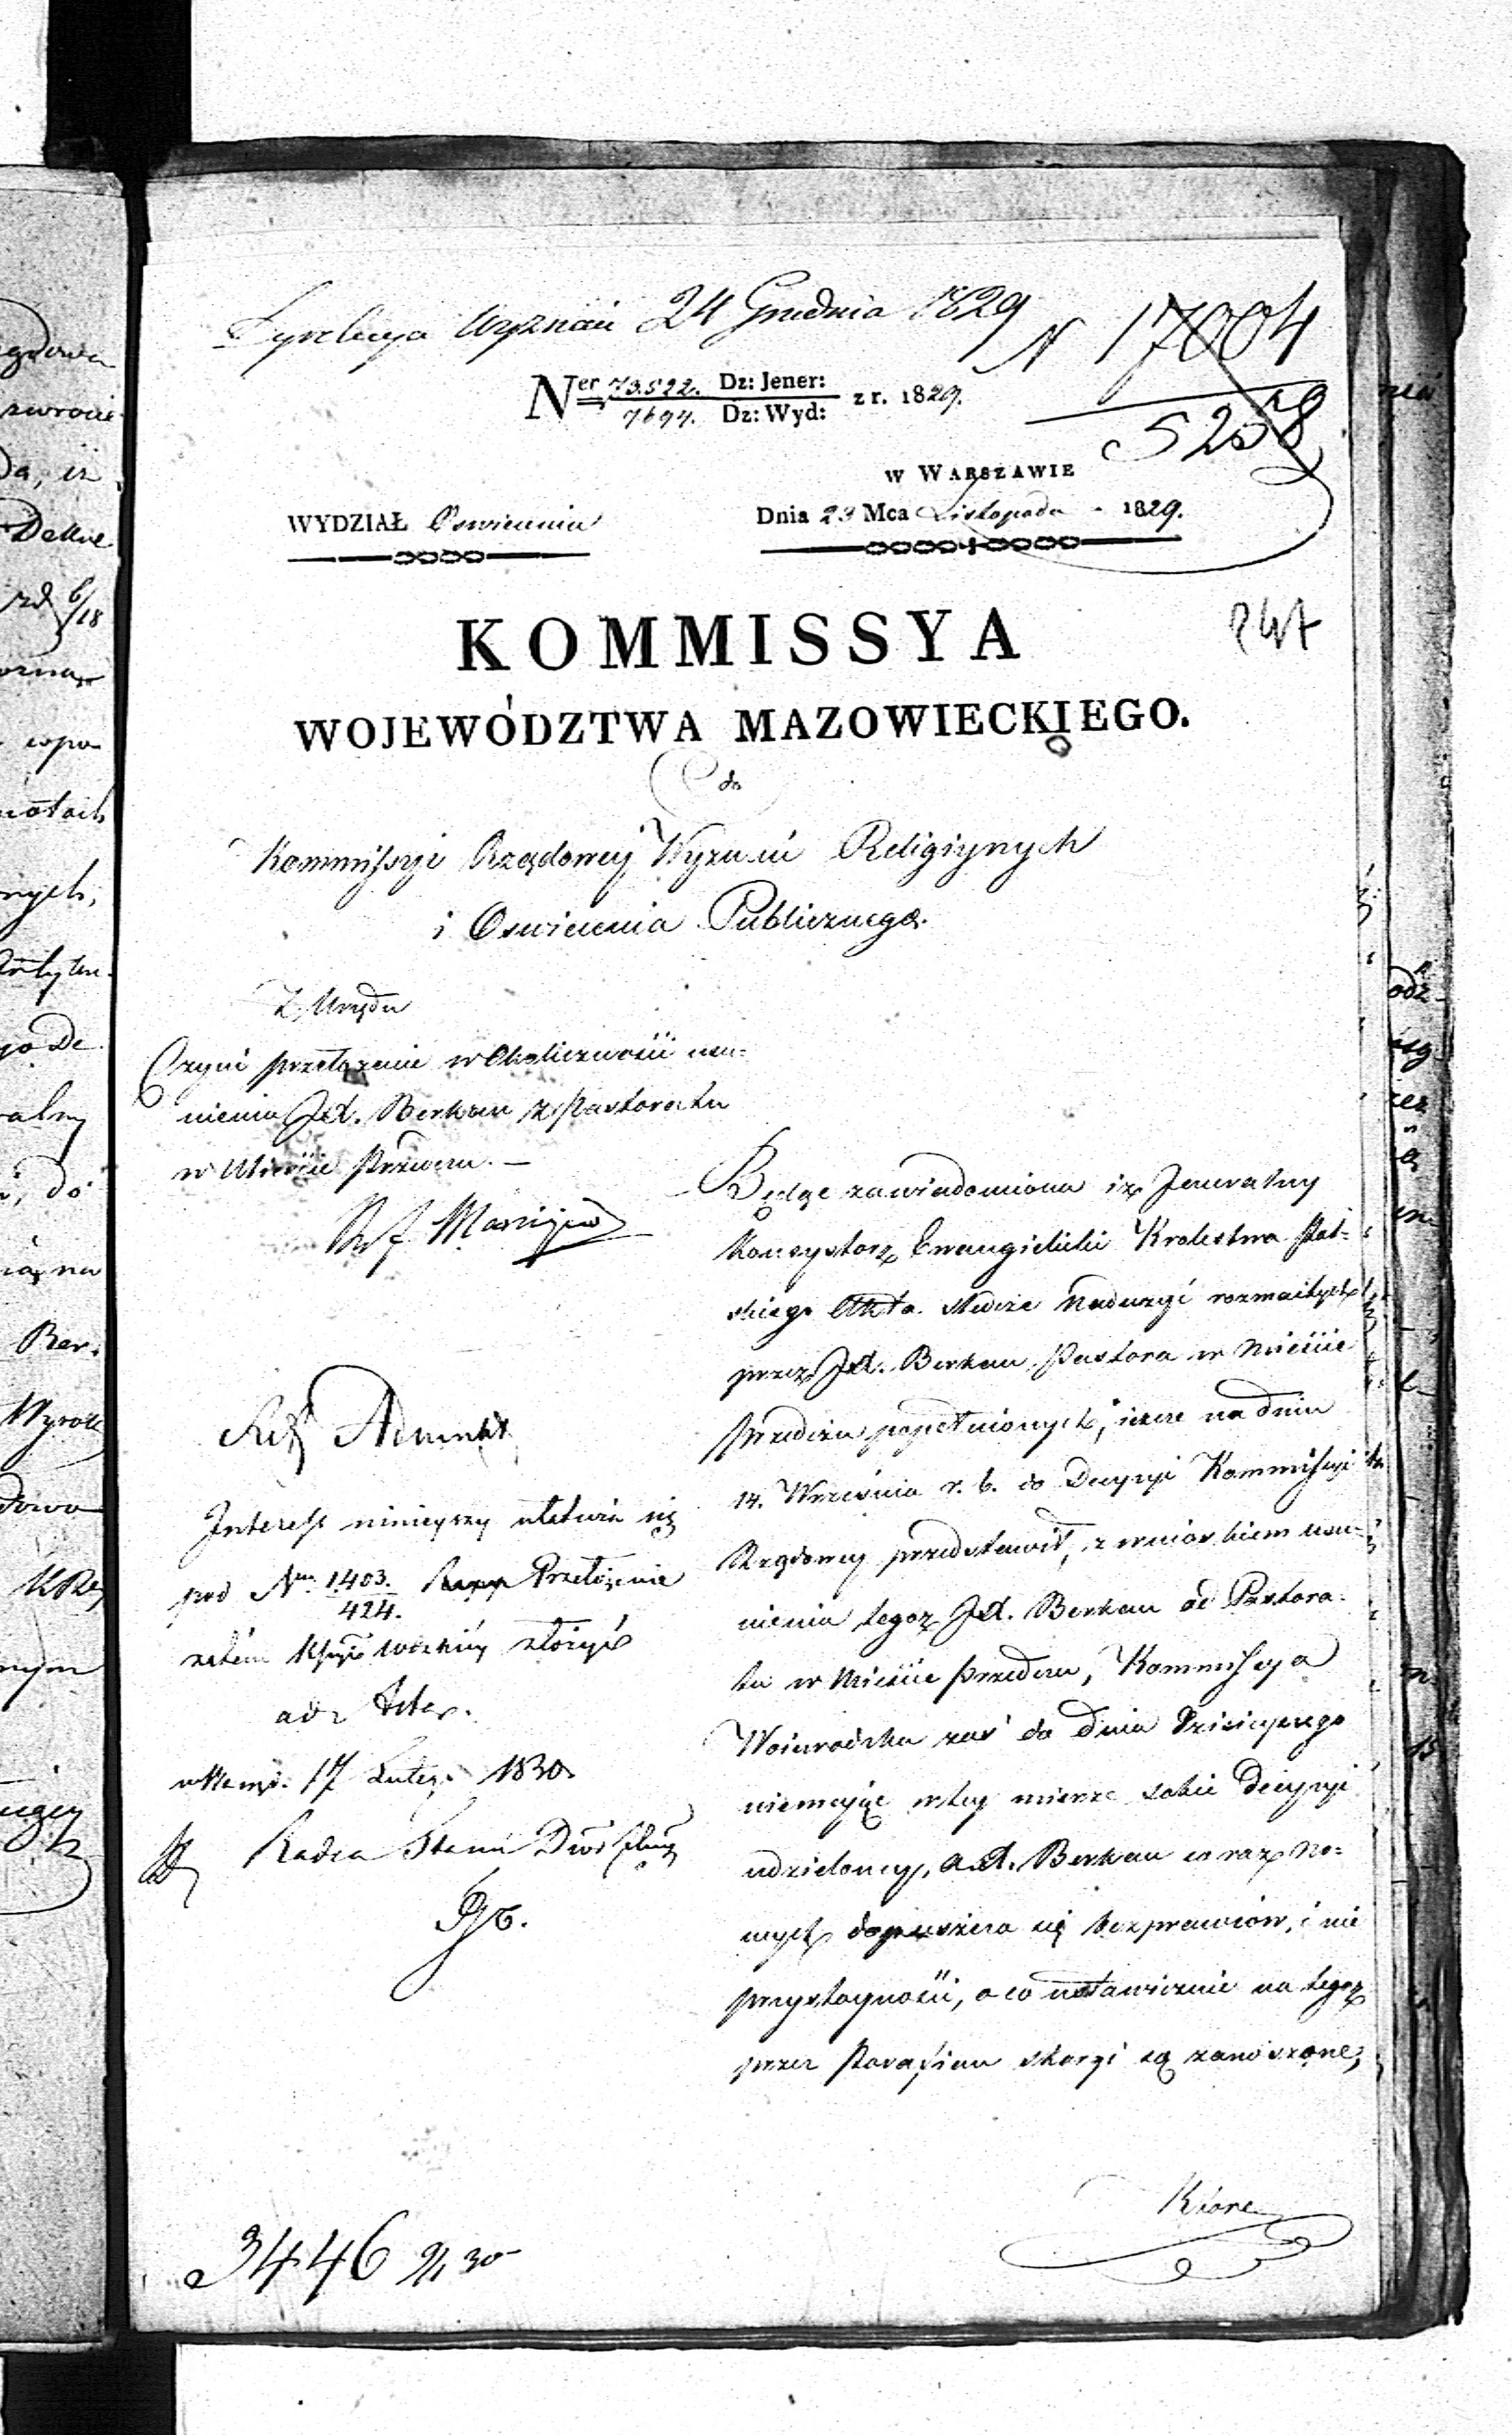 Wyznań 24 Grudnia 1829
N 17004
5258
Ner 73.522. Dz: Jener:
7694. Dz: Wyd:
z r. 1829.
w Warszawie
WYDZIAŁ Oswiecenia
Dnia 23 Mca Listopada 1829.
KOMMISSYA
WOJEWÓDZTWA MAZOWIECKIEGO.
do
Kommissyi Rządowey Wyznań Religiynych
i Oswiecenia Publicznego.
Z Urzędu
Czyni przełożenie w Okoliczności usu=
nienia Jxd. Berkau z Pastoratu
w Mieście Przedczu. —
Interess ninieyszy ułatwia się
pod Nrm 1403. Przełożenie
424.
zatem złożyć
ad Acta.
17 Luteg. 1830.
Radca Stanu
Będąc zawiadomiona iż Jeneralny
Konsystorz Ewangielicki Krolestwa Pol=
skiego Akta śledcze nadużyć rozmaitych
przez Jxd. Berkau Pastora w Mieście
Przedczu popełnionych, ieszcze na dniu
14. Września r. b. do Decyzyi Kommissyi
Rządowey przedstawił, z wnioskiem usu=
nienia tegoż Jxd. Berkau od Pastora=
tu w Mieście Przedczu, Kommissya
Woiewódzka zaś do dnia dzisieyszego
niemaiąc w tey mierze sobie Decyzyi
udzieloney, a xd. Berkau co raz no=
wych dopuszcza się bezprawiów, i nie
przystoyności, o co ustawicznie na tegoż
przez Parafian skargi są zanoszone,
Które
3446